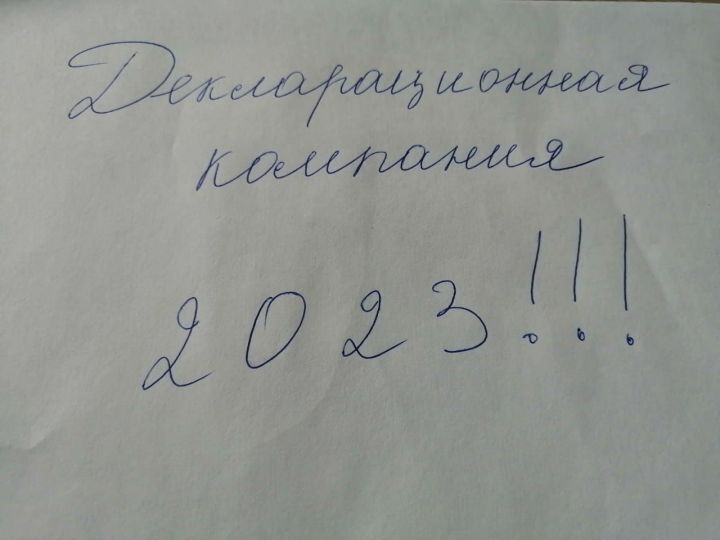 Декларационная
кампания
2023!!!